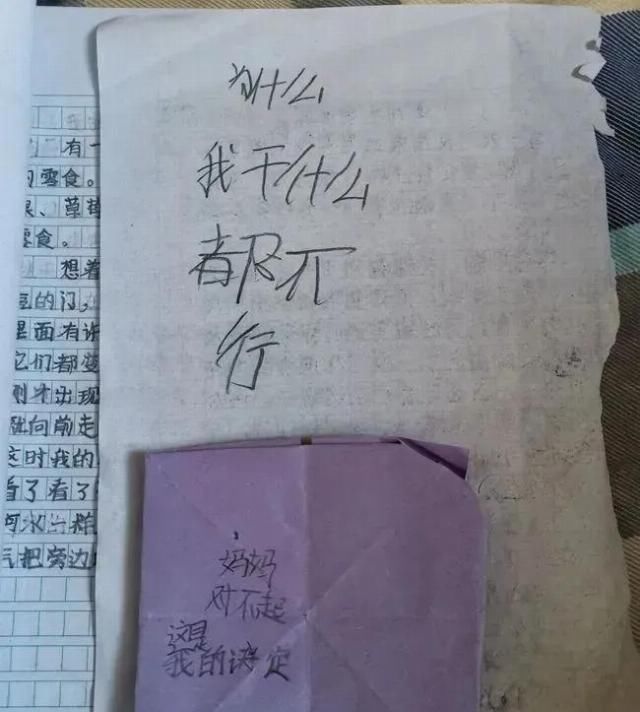 为什么
我干什么
都不
行
妈妈
对不起
这是
我的决定
有一
零食。
、草莓
零食。
想着
的门,
里面有许
它们都变
刚才出现
就向前走
这时我的
看了看了
河水
把旁边